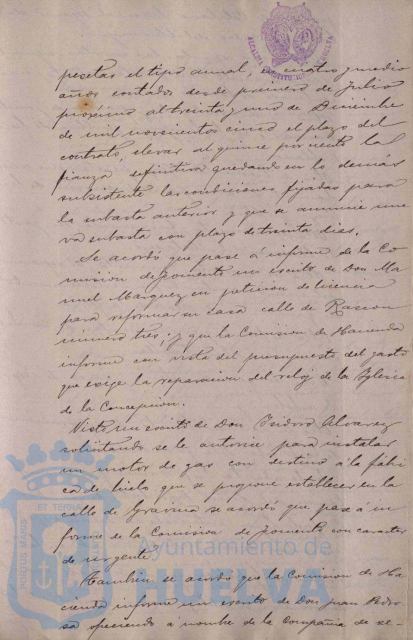 pesetas el tipo anual, a cuatro y medio
años contados desde primero de Julio
proximo al treinta y uno de Diciembre
de mil novecientos cinco el plazo del
contrato, elevar al quince por ciento la
fianza definitiva quedando en lo demás
subsistente las condiciones fijadas para
la subasta anterior y que se anuncie nue
va subasta con plazo de treinta dias.
Se acordó que pase á informe de la Co
mision de Fomento un escrito de Don Ma
nuel Marquez en peticion de licencia
para reformar su casa calle de Rascon
número tres; y que la Comision de Hacienda
informe con vista del presupuesto del gasto
que exige la reparacion del reloj de la Iglesia
de la Concepcion.
Visto un escrito de Don Isidro Alvarez
solicitando se le autorice para instalar
un motor de gas con destino á la fábri
ca de hielo que se propone establecer en la
calle de Gravina se acordó que pase á in
forme de la Comision de Fomento con caracter
de urgente.
Tambien se acordó que la Comision de Ha
cienda informe un escrito de Don Juan Pedro
sa ofreciendo á nombre de la Compañia de se-
PORTUS MARIS
ET TERRAE
Ayuntamiento de
HUELVA